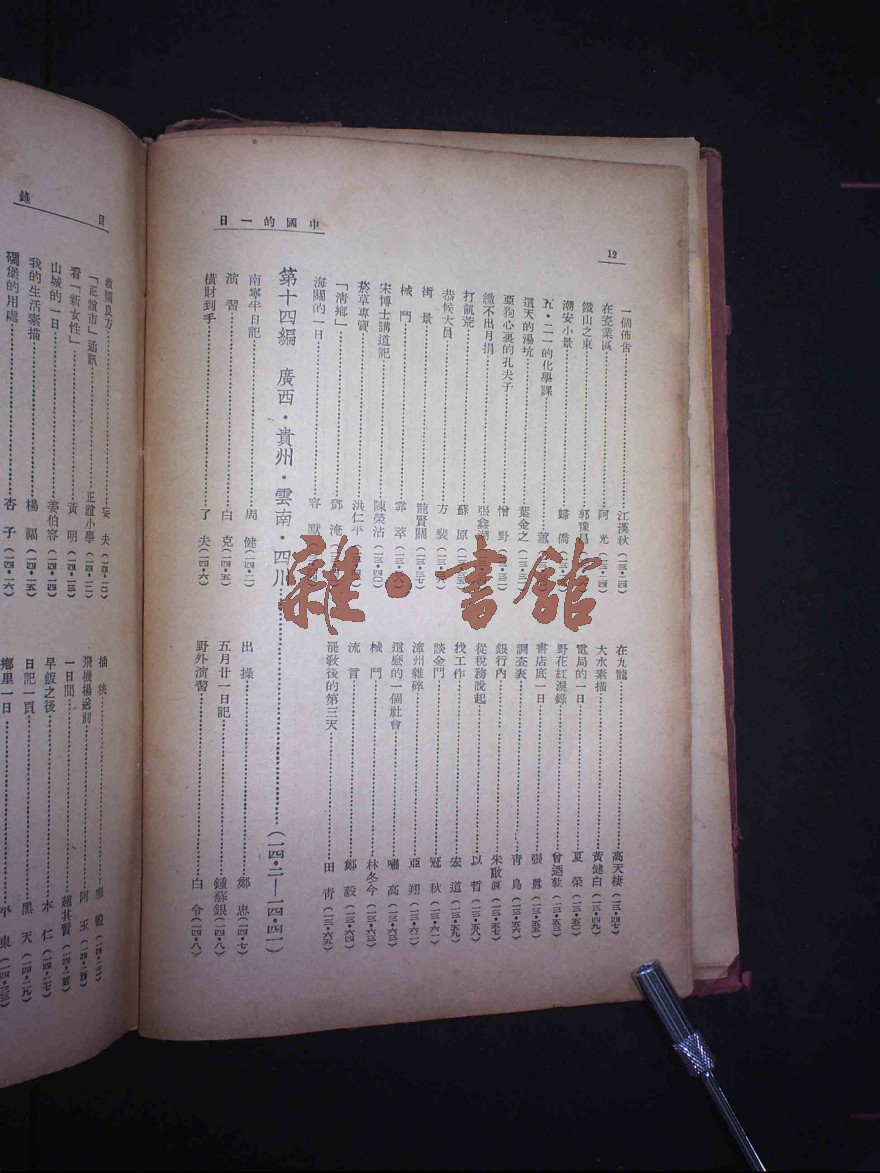 12
中國的一日
一個佈告 江漢秋(一三·二四)
在瓷業區 阿光
鐵山之東
潮安小景 鄉僑
五·二一的化學課
這天的湯坑 葉金之
亞狗心裏的孔夫子 憎野
繳不出月捐
打飢荒 蘇原
恭候大員 方斐
街景 龍賢關(一三·三七)
械鬥 霏萃
宋博士講道記 陳榮沾
菸草專賣 洪仁平
「清鄉」 鄧淹
海關的一日 容默
在九龍 高天棲(一三·四七)
大水素描 黃健白(一三·四九)
電局的一日 夏榮(一三·五二)
野花紅淚錄 曾迺敦(一三·五三)
書店底一日
調查表 青鳥(一三·五五)
銀行內
從稅務說起 以哲
找工作 宏道
談金門 冠秋(一三·六一)
漳州雜碎 亞翔
這麼的一個社會 嘯高
械鬥 林冬今(一三·六三)
流言 鄭毅(一三·六四)
罷教後的第三天 田青(一三·六五)
第十四編 廣西·貴州·雲南·四川 (一四·二—一四·四一)
南寧半日記 周健(一四·二)
演習 白克(一四·五)
橫財到手 了夫(一四·六)
出操 鄭忠(一四·七)
五月廿一日記 鍾蘇銀(一四·八)
野外演習 白令(一四·八)
目錄
救國良方 妄夫(一四·一〇)
「正誼市」通訊 正誼小學(一四·一二)
看「新女性」 黃明(一四·一三)
山城的一日 姜伯容(一四·一四)
我的生活素描 楊福(一四·一五)
碉堡的用處 杏子(一四·一六)
插秧
飛機場送別 阿玉
一日間 趙其賢
早飯之後 水仁(一四·二七)
日記一頁 黑天(一四·二九)
鄉里一日
雜·書館